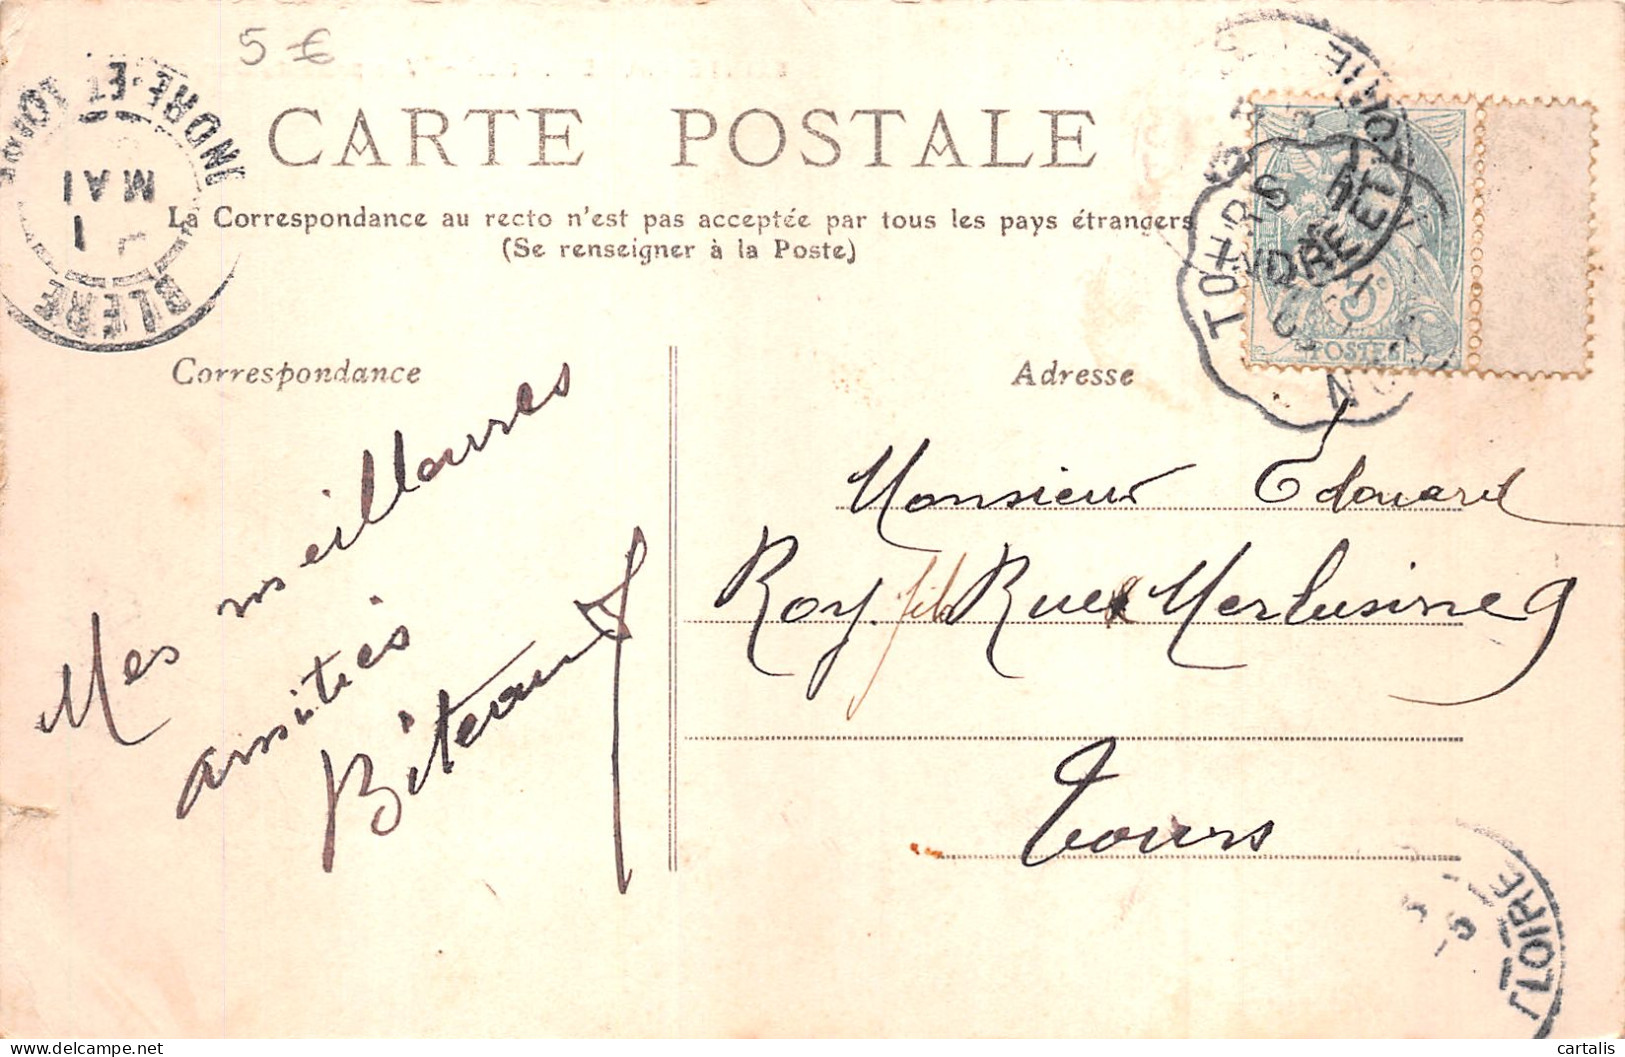 5 €
CARTE POSTALE
La Correspondance au recto n'est pas acceptée par tous les pays étrangers
(Se renseigner à la Poste)
BLÉRÉ
1
MAI
INDRE-ET-LOIRE
TOURS
INDRE ET
POSTES
Correspondance
Adresse
Mes meilleures
amitiés
Biteau
Monsieur Édouard
Roy fils Rue Merlusine 9
Tours
LOIRE
cartalis